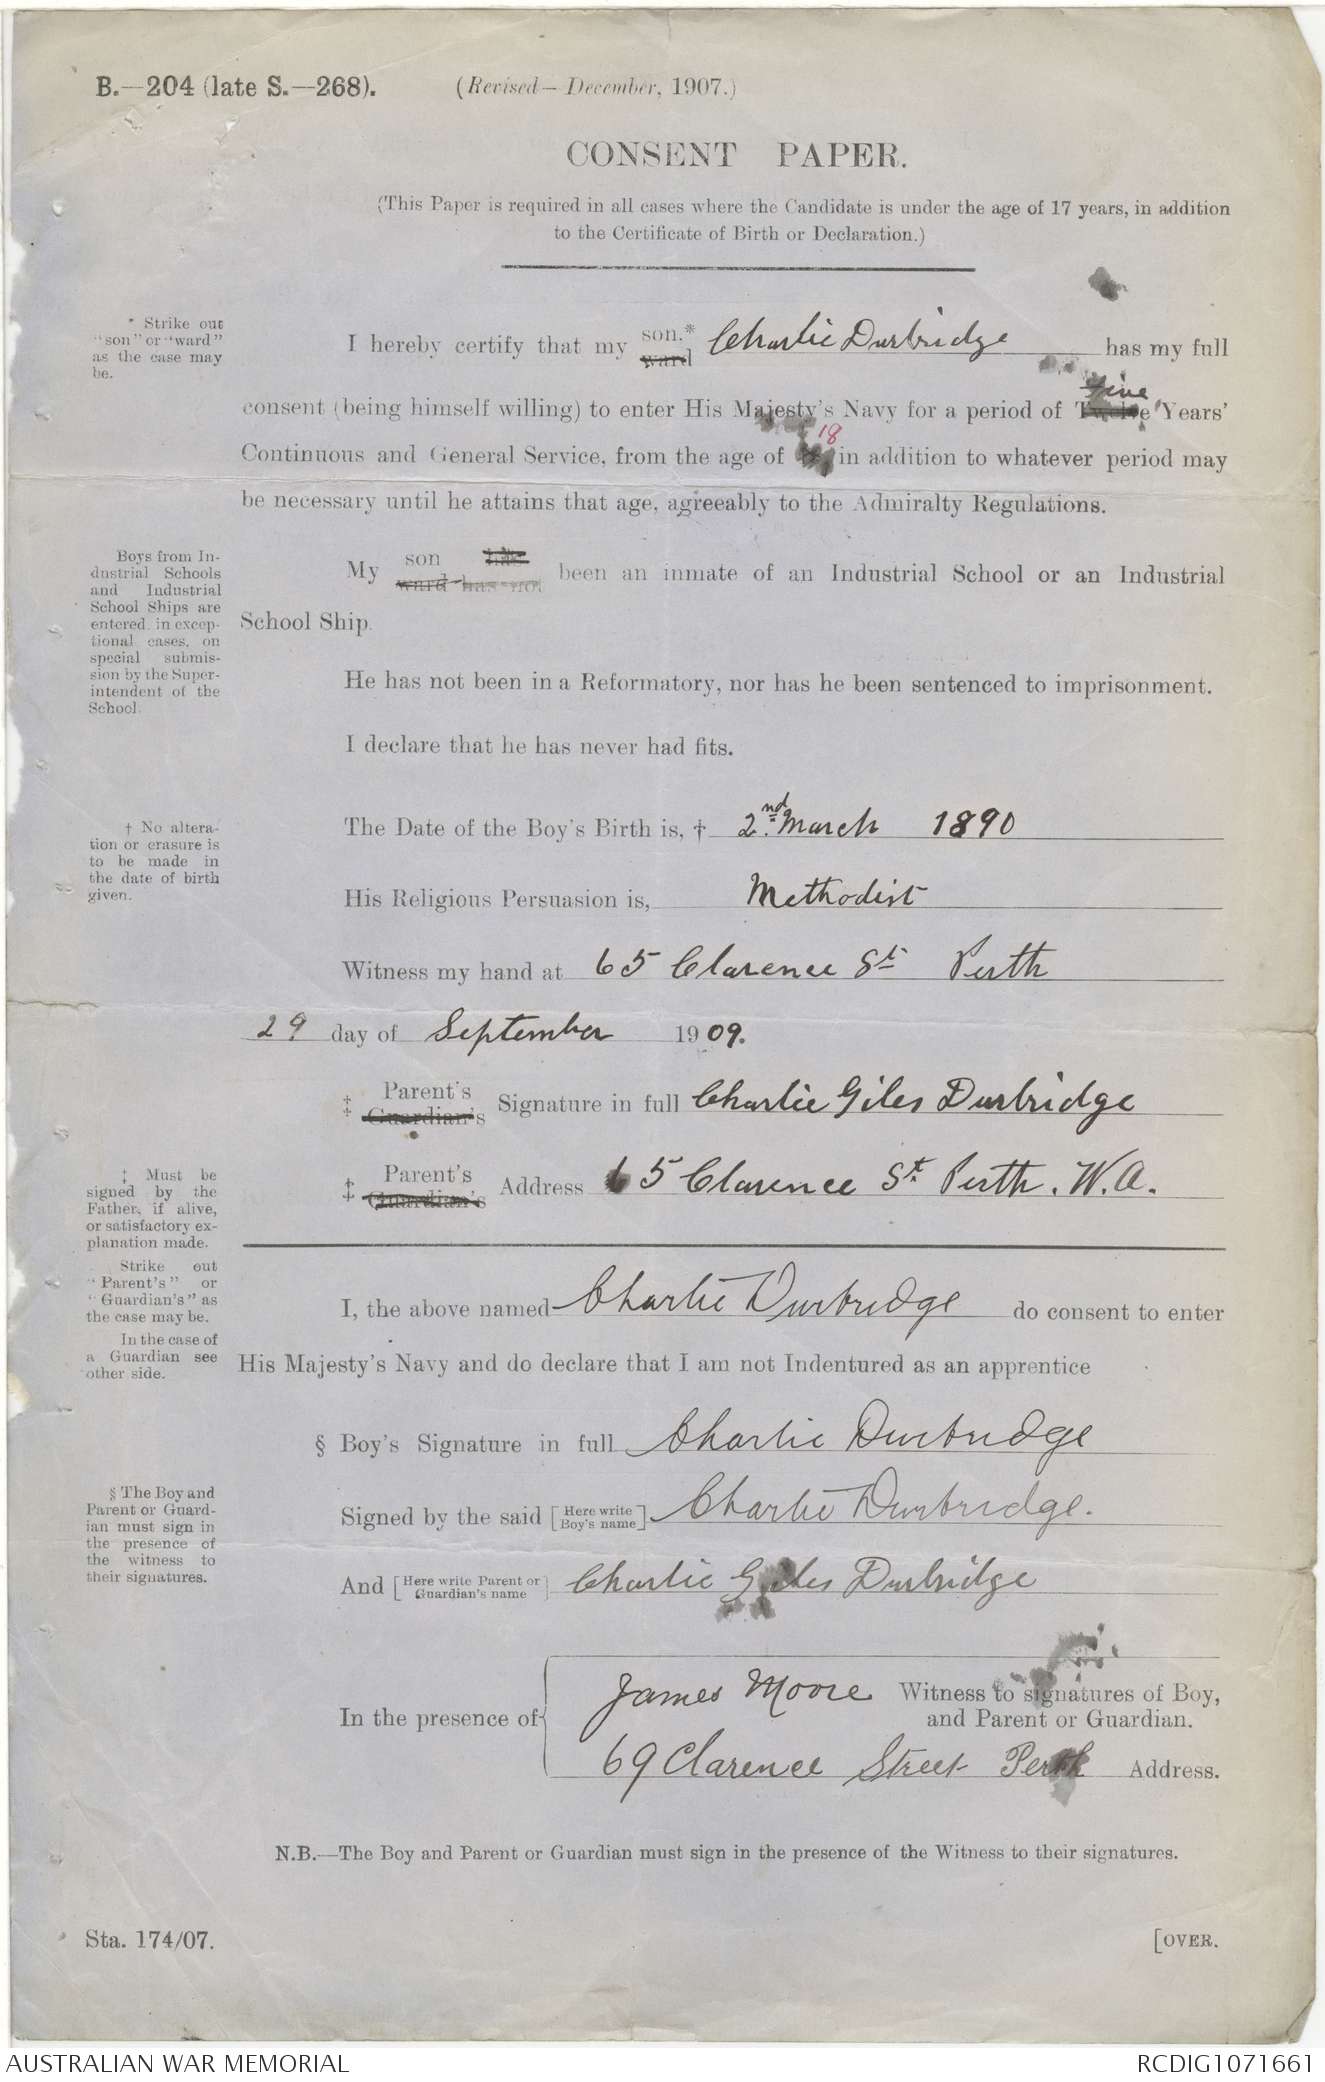 B.—204 (late S.—268). (Revised—December, 1907.)
CONSENT PAPER.
(This Paper is required in all cases where the Candidate is under the age of 17 years, in addition
to the Certificate of Birth or Declaration.)
* Strike out
"son" or "ward"
as the case may
be.
I hereby certify that my son.* ward Charlie Durbridge has my full
consent (being himself willing) to enter His Majesty's Navy for a period of Twelve Five Years'
Continuous and General Service, from the age of 18 in addition to whatever period may
be necessary until he attains that age, agreeably to the Admiralty Regulations.
Boys from In-
dustrial Schools
and Industrial
School Ships are
entered, in excep-
tional cases, on
special submis-
sion by the Super-
intendent of the
School.
My son has
ward has not been an inmate of an Industrial School or an Industrial
School Ship.
He has not been in a Reformatory, nor has he been sentenced to imprisonment.
I declare that he has never had fits.
† No altera-
tion or erasure is
to be made in
the date of birth
given.
The Date of the Boy's Birth is, † 2nd. March 1890
His Religious Persuasion is, Methodist
Witness my hand at 65 Clarence St Perth
29 day of September 1909.
‡ Parent's
Guardian's Signature in full Charlie Giles Durbridge
‡ Parent's
Guardian's Address 65 Clarence St. Perth. W.A.
‡ Must be
signed by the
Father, if alive,
or satisfactory ex-
planation made.
Strike out
"Parent's" or
"Guardian's" as
the case may be.
In the case of
a Guardian see
other side.
I, the above named Charlie Durbridge do consent to enter
His Majesty's Navy and do declare that I am not Indentured as an apprentice
§ Boy's Signature in full Charlie Durbridge
§ The Boy and
Parent or Guard-
ian must sign in
the presence of
the witness to
their signatures.
Signed by the said [Here write Boy's name] Charlie Durbridge.
And [Here write Parent or Guardian's name] Charlie Giles Durbridge
In the presence of
James Moore Witness to signatures of Boy,
and Parent or Guardian.
69 Clarence Street Perth Address.
N.B.—The Boy and Parent or Guardian must sign in the presence of the Witness to their signatures.
Sta. 174/07. [OVER.
AUSTRALIAN WAR MEMORIAL RCDIG1071661